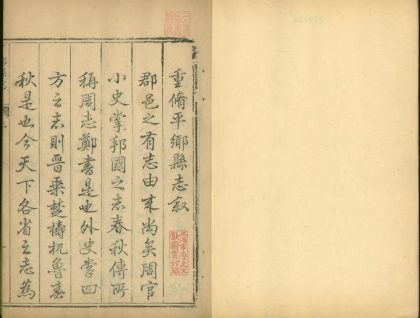 重脩平鄉縣志敘
郡邑之有志由来尚矣周官
小史掌邦國之志春秋傳所
稱周志鄭書是也外史掌四
方之志則晉乗楚檮杌魯春
秋是也今天下各省之志為